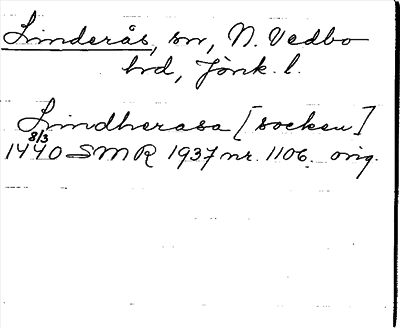 Linderås, sn, N. Vedbo
hd, Jönk. l.
Lindherasa [socken]
8/3
1440 SMR 1937 nr. 1106. orig.